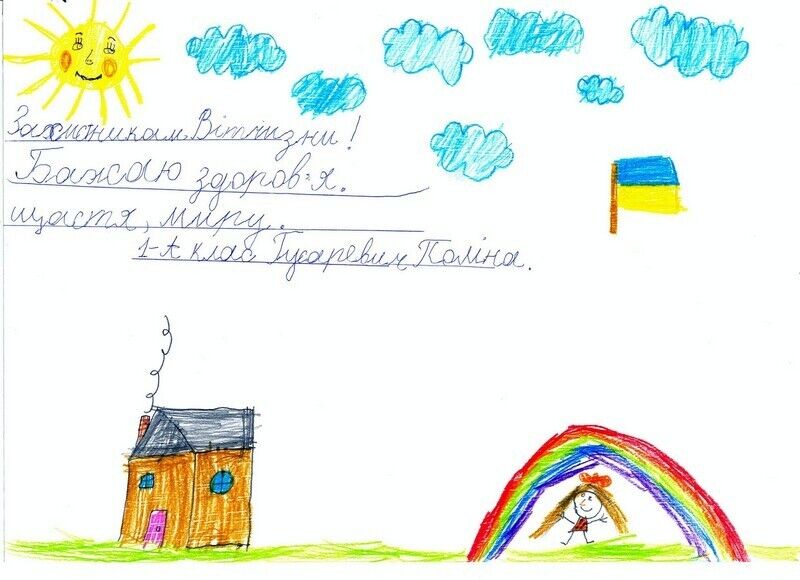 Захистникам Вітчизни!
Бажаю здоров'я.
щастя, миру.
1-А клас Гугаревич Поліна.